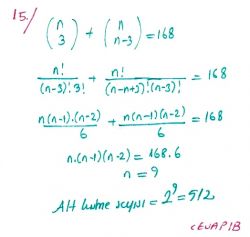 15./ (n 3) + (n n-3) = 168
n!/((n-3)!·3!) + n!/((n-n+3)!(n-3)!) = 168
n(n-1).(n-2)/6 + n(n-1)(n-2)/6 = 168
n.(n-1)(n-2) = 168.6
n = 9
Alt küme sayısı = 2^9 = 512
CEVAP B